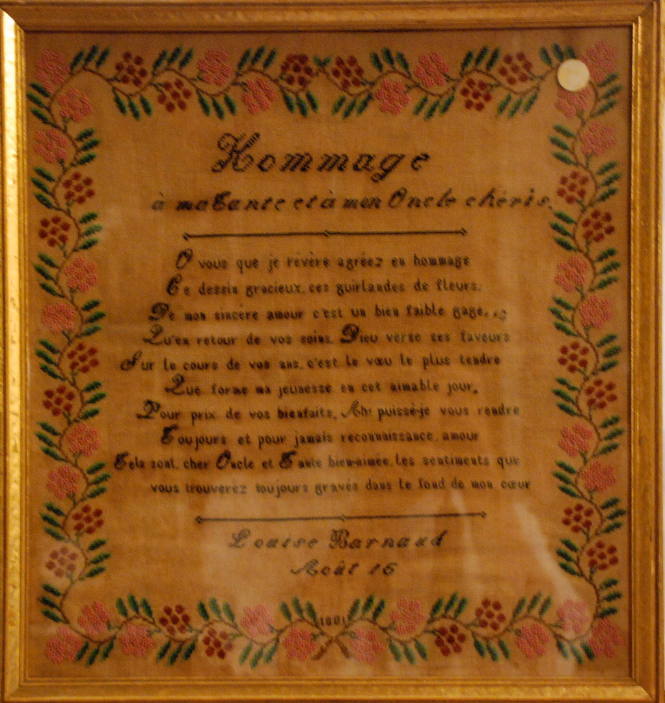 Hommage
à ma Tante et à mon Oncle chéris
O vous que je révère agréez en hommage
Ce dessin gracieux, ces guirlandes de fleurs,
De mon sincère amour c'est un bien faible gage,
Qu'en retour de vos soins, Dieu verse ses faveurs
Sur le cours de vos ans, c'est le vœu le plus tendre
Que forme ma jeunesse en cet aimable jour,
Pour prix de vos bienfaits, Ah! puissè-je vous rendre
Toujours et pour jamais reconnaissance, amour
Tels sont, cher Oncle et Tante bien-aimée, les sentiments que
vous trouverez toujours gravés dans le fond de mon cœur
Louise Barnaud
Août 16